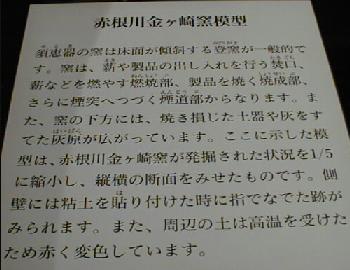 赤根川金ヶ崎窯模型
須恵器の窯は床面が傾斜する登窯が一般的で
す。窯は、薪や製品の出し入れを行う焚口、
薪などを燃やす燃焼部、製品を焼く焼成部、
さらに煙突へつづく煙道部からなります。ま
た、窯の下方には、焼き損じた土器や灰をす
てた灰原が広がっています。ここに示した模
型は、赤根川金ヶ崎窯が発掘された状況を1/5
に縮小し、縦横の断面をみせたものです。側
壁には粘土を貼り付けた時に指でなでた跡が
みられます。また、周辺の土は高温を受けた
ため赤く変色しています。